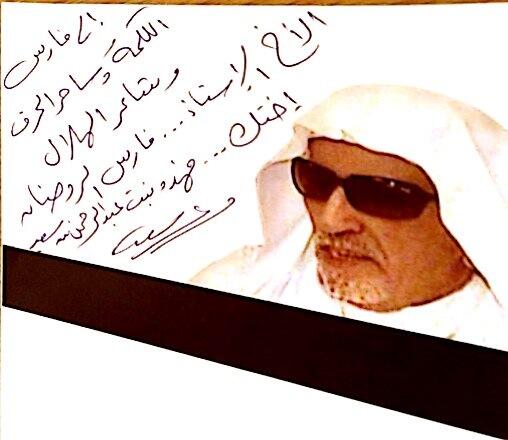 إلى فارس
الكلمة وساحر الحرف
وشاعر الهلال
الأخ الأستاذ... فارس الروضان
اختك... بنت عبدالرحمن بن